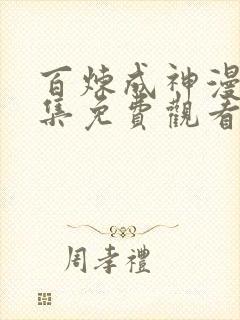 百煉成神漫
集免費觀看
周孝禮